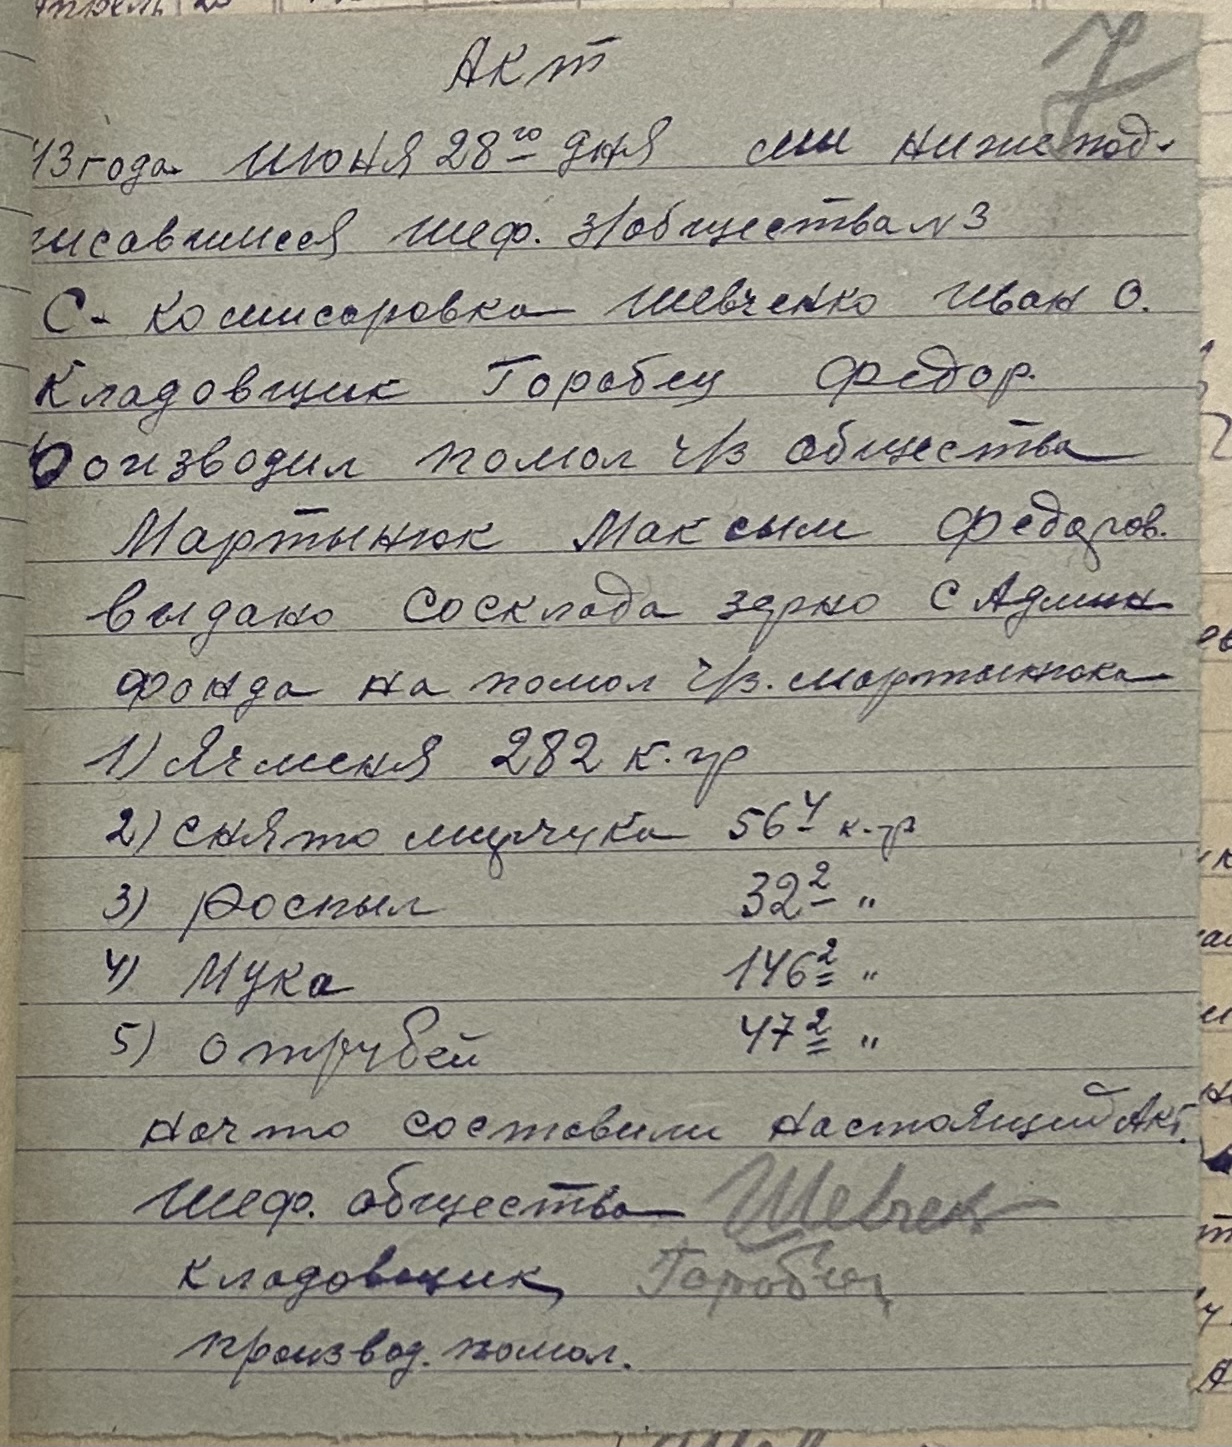 7
Акт
43 года июня 28го дня мы нижепод-
писавшиеся шеф. з/общества N 3
С- Комисаровка Шевченко Иван О.
Кладовщик Горобец Федор.
производил помол ч/з общества
Мартынюк Максым Федоров.
выдано сосклада зерно с Админ
фонда на помол ч/з. мартынюка
1) Ячменя 282 к.гр
2) снято мирчука 56 4 к.гр
3) роспыл 32 2 "
4) Мука 146 2 "
5) отрубей 47 2 "
начто составили настоящий Акт.
шеф. общества Шевчен
кладовщик Горобец
производ. помол.